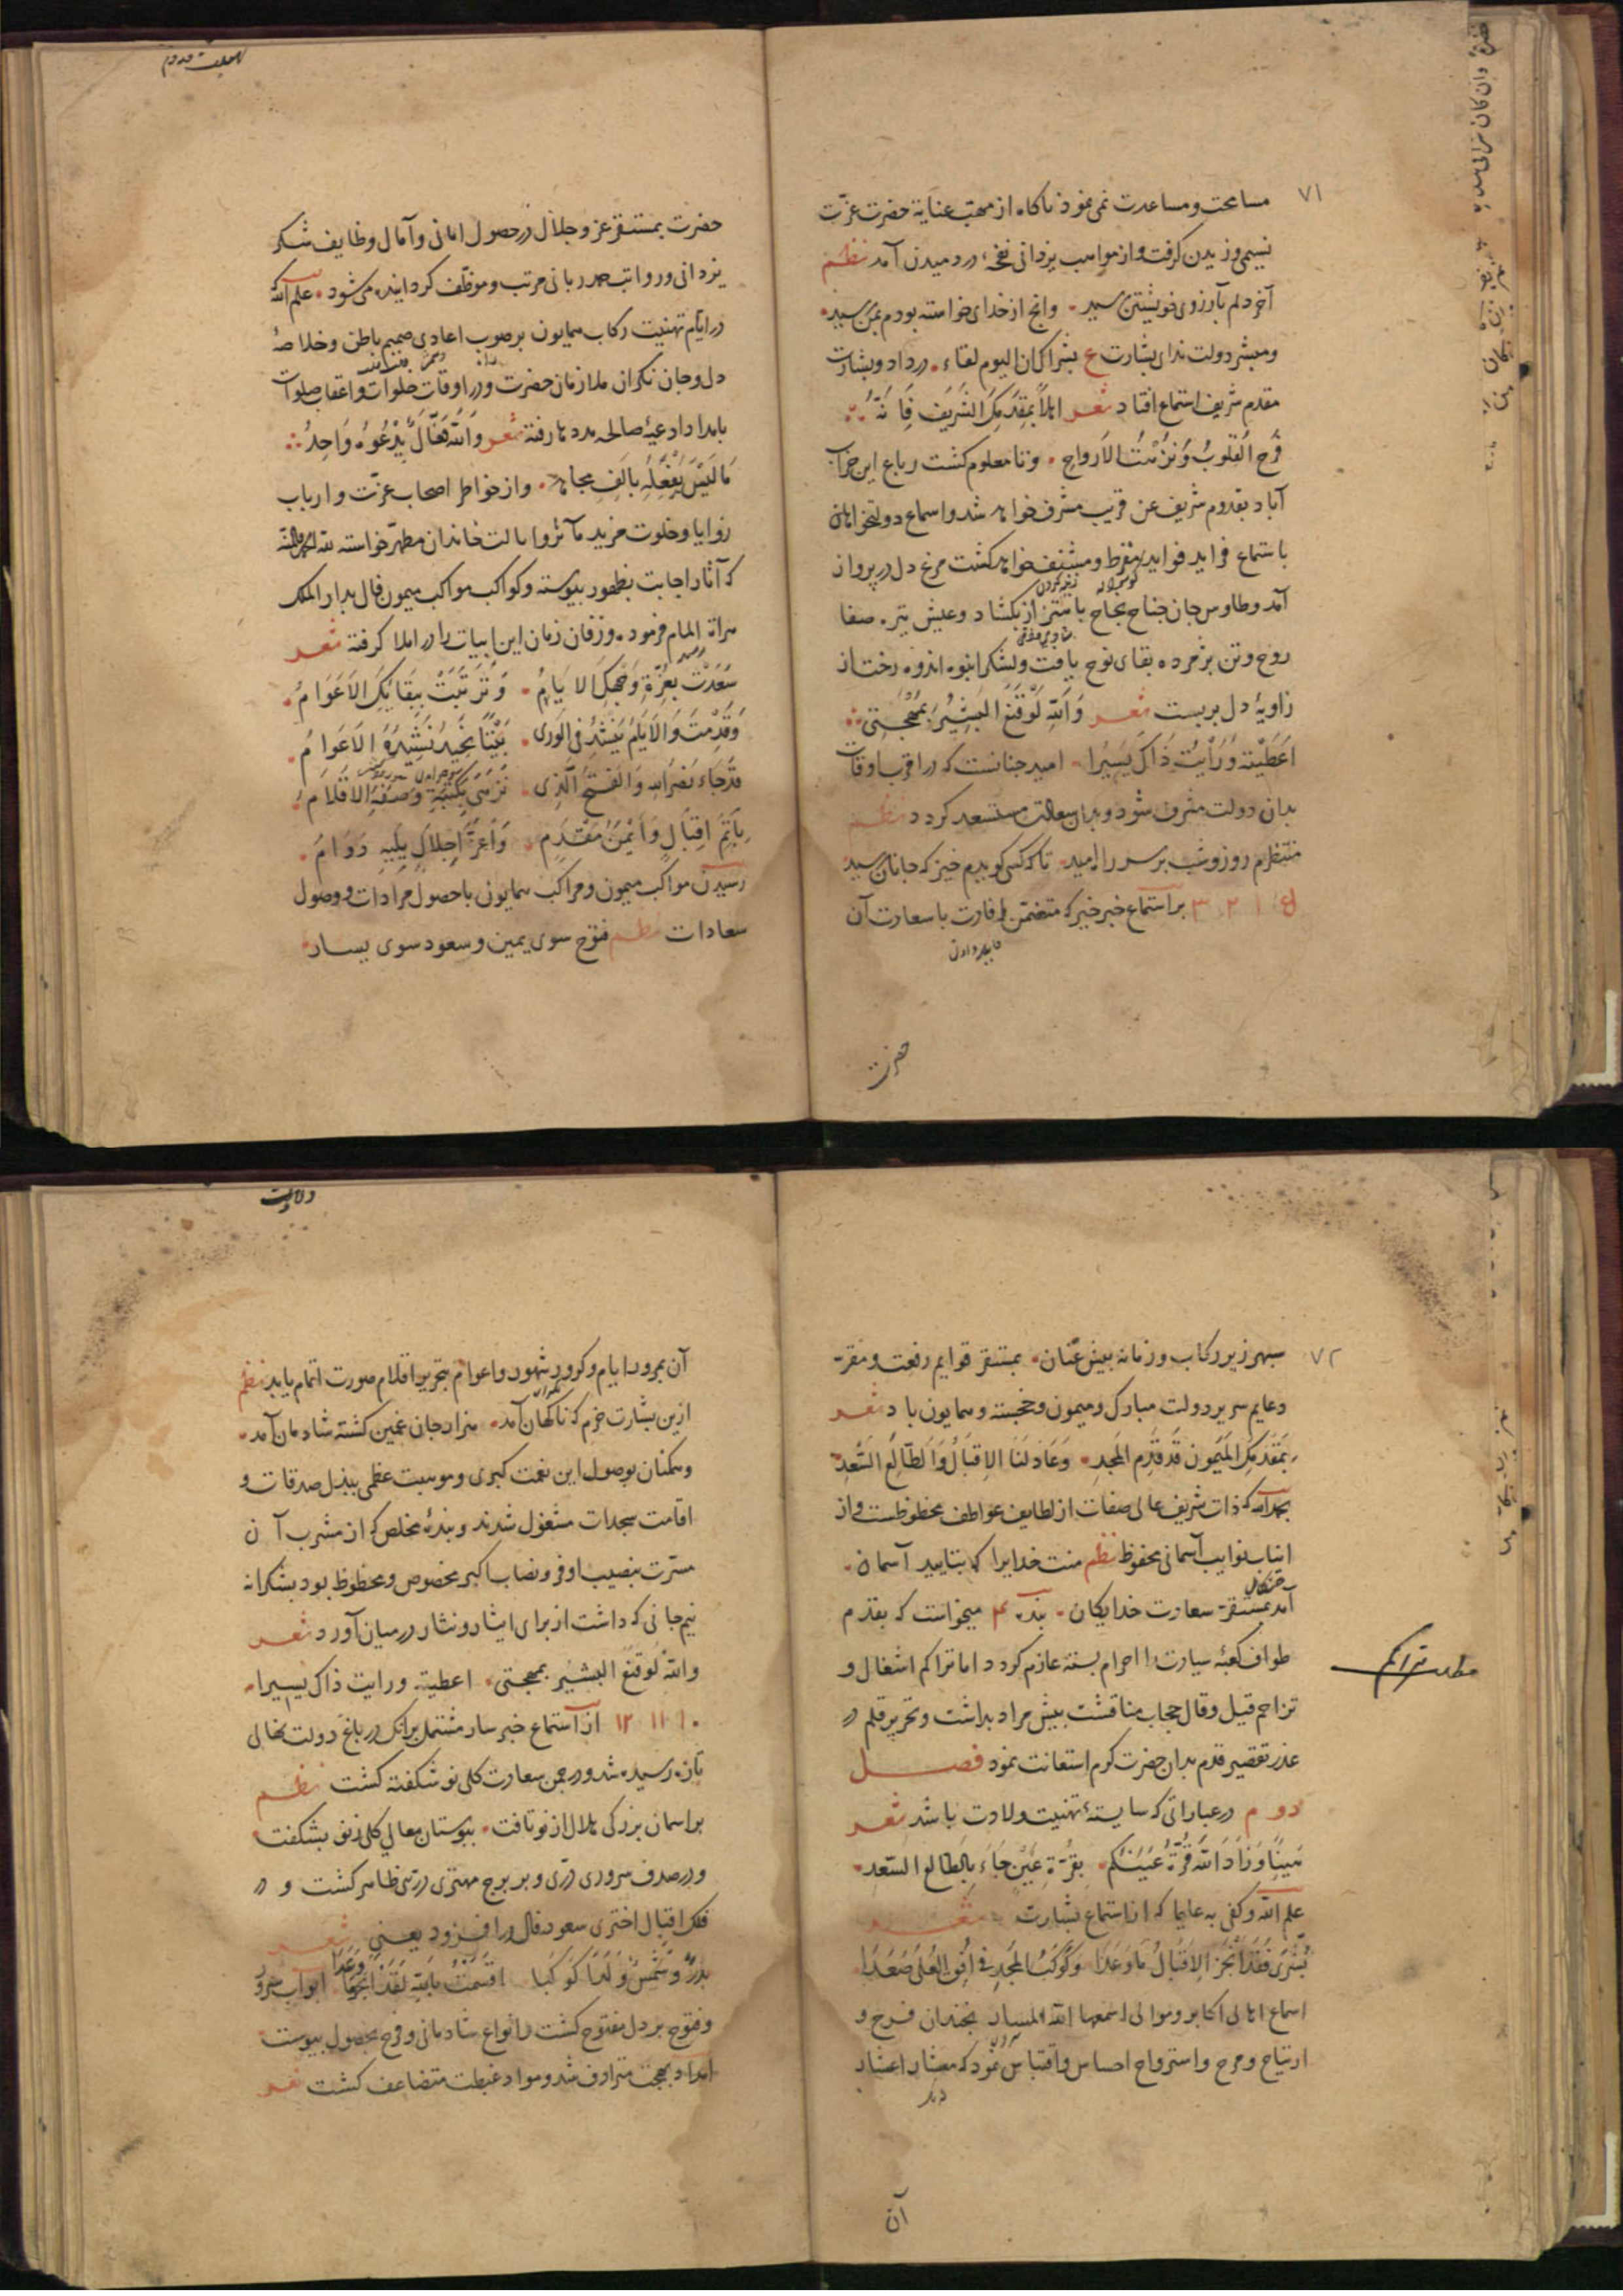 ۷۱
مسامحت و مساعدت نمی نمود ناکاه از مهب عنایة حضرت عزّت
نسیمی وزیدن کرفت و از مواهب یزدانی نفخهٔ در دمیدن آمد نظم
آخر دلم بآرزوی خویشتن رسید • وانچ از خدای خواسته بودم بمن رسید •
ومبشر دولت ندای بشارت ع بشراکان الیوم لقاء • در داد و بشارت
مقدم شریف استماع افتاد شعر اهلاً بمقدمک الشریف فانّهُ
فرح القلوب ونزهت الارواح • وتا معلوم کشت رباع این خراب
آباد بقدوم شریف عن قریب مشرف خواهد شد و اسماع دولتخواهان
باستماع فراید فواید مقرط ومشنف خواهد کشت مرغ دل در پرواز
آمد و طاوس جان جناح نجاح باهتزاز بکشاد و عیش تیره صفا
روح وتن پژمرده بقای نوح یافت ولشکر انبوه اندوه رخت از
زاویهٔ دل بربست شعر وَاللّهِ لَوْقَنَعَ البَشیرُ بمُهْجَتی
اَعْطَیْتُه وَرَأَیْتُ ذَاکَ یَسیرا • امید چنانست که در اقرب اوقات
بدان دولت مشرف شود و بدان سعادت مستسعد کردد نظم
منتظرم روز و شب بر سر راه امید • تا که کسی کویدم خیز که جانان رسید
ع ۱ ۲ ۳ براستماع خبر خیر که متضمن افادت باسعادت آن
حضرت
حضرت بمستقر عز و جلال در حصول امانی و آمال وظایف شکر
یزدانی و رواتب حمد ربانی مرتب و موظف کردانیده می شود • علم الله که
در ایام تهنیت رکاب همایون بر صوب اعادی صمیم باطن و خلاصهٔ
دل و جان نکران ملازمان حضرت و در اوقات خلوات واعقاب صلوات
بامداد ادعیهٔ صالحه مدد ها رفته شعر وَاللّه فَعّالٌ یَدْعُوهُ وَاحِدُ
مَا لَیْسَ یَفْعَلُهُ بِاَلفِ مجاهد • واز خواطر اصحاب عزّت و ارباب
زوایا و خلوت مزید مآثر و ایالت خاندان مطهر خواسته لله الحمد والمنه
که آثار اجابت بظهور پیوسته و کواکب مواکب میمون فال بدار الملک
هراة المام فرموده وزفان زمان این ابیات را در املا کرفته شعر
سَعَدَتْ بِعِزّةِ وَجْهِکَ الایَامُ • وَتَزَیَّنَتْ بِبَقَائِکَ الاَعْوَامُ •
وَقَدِمْتَ وَالاَیّامُ یُنْشِدُ فی الوَرَی •
قَدْجَاءَ نَصْرُاللّهِ وَالفَتحُ الَّذِی •
بِاَتَمِّ اِقْبَالٍ وَاَیْمَنِ مَقْدَمٍ • وَاَعَزِّ اِجْلالٍ یَلِیهِ دَوَامُ •
رسیدن مواکب میمون و مراکب همایون باحصول مرادات و وصول
سعادات نظم فتوح سوی یمین و سعود سوی یسار
۷۲
سپهر زیر رکاب و زمانه پیش عنان • بمستقر قوایم رفعت و مقر
دعایم سریر دولت مبارک و میمون و خجسته و همایون باد شعر
بِمَقْدَمِکَ المَیْمُونِ قَدْ قَدِمَ المَجْدُ • وَعَادَ لَنَا الاِقبَالُ وَالطّالِعُ السَّعْدُ
بحمدالله که ذات شریف عالی صفات از لطایف عواطف محظوظست و از
انیاب نوایب آسمانی محفوظ نظم منت خدایرا که بتایید آسمان •
آمد بمستقر سعادت خدایکان • بنده ۴ میخواست که بقدم
طواف کعبهٔ سیادت را احرام بسته عازم کردد اما تراکم اشغال و
تزاحم قیل و قال حجاب مناقشت پیش مراد بداشت و تحریر قلم در
عذر تقصیر قدم بدان حضرت کرم استعانت نمود فصل
دوم در عباراتی که شایستهٔ تهنیت ولادت باشد شعر
هَنِیئاً وَزَادَ اللّه قُرَّةَ عَیْنِکُم • بِقُرّةِ عَیْنٍ جَاءَ بِالطَالِعِ السَّعْدِ •
علم الله وکفی به علیما که از استماع بشارت شعر
بُشْرَی فَقَدْ اَنْجَزَ الاِقْبَالُ مَا وَعَدَا • وَکَوْکَبُ المَجْدِ فِی اُفُقِ العُلَی صَعَدَا
اسماع اهالی اکابر و موالی اسمعها الله المسار بچندان فرح و
ارتیاح و مرح و استرواح احساس و اقتباس نمود که معشار اعشار
آن
ولادت
آن بمرور ایام و کرور شهور و اعوام بتحریر اقلام صورت اتمام یابد نظم
ازین بشارت خرم که ناکهان آمد • هزار جان غمین کشته شادمان آمد •
وهمکنان بوصول این نعمت کبری و موهبت عظمی ببذل صدقات و
اقامت سجدات مشغول شدند و بندهٔ مخلص که از مشرب آن
مسرّت بنصیب اوفر و نصاب اکبر مخصوص و محظوظ بود بشکرانه
نیم جانی که داشت از برای ایثار و نثار در میان آورد شعر
والله لوقنع البشیر بمهجتی • اعطیته ورایت ذاک یسیرا •
۱۰ ۱۱ ۱۲ از استماع خبر سار مشتمل برانک در باغ دولت نهالی
تازه رسیده شد و در چمن سعادت کلی نو شکفته کشت نظم
بر اسمان بزرکی هلال از نو تافت • ببوستان معالی کلی ز نو بشکفت
و در صدف سروری دری و بر برج مهتری دری ظاهر کشت و در
فلک اقبال اختری سعود فال در افزود یعنی شعر
ابواب سرور
و فتوح بر دل مفتوح کشت و انواع شادمانی و فرح بحصول پیوست
امداد بهجت مترادف شد و مواد غبطت متضاعف کشت شعر